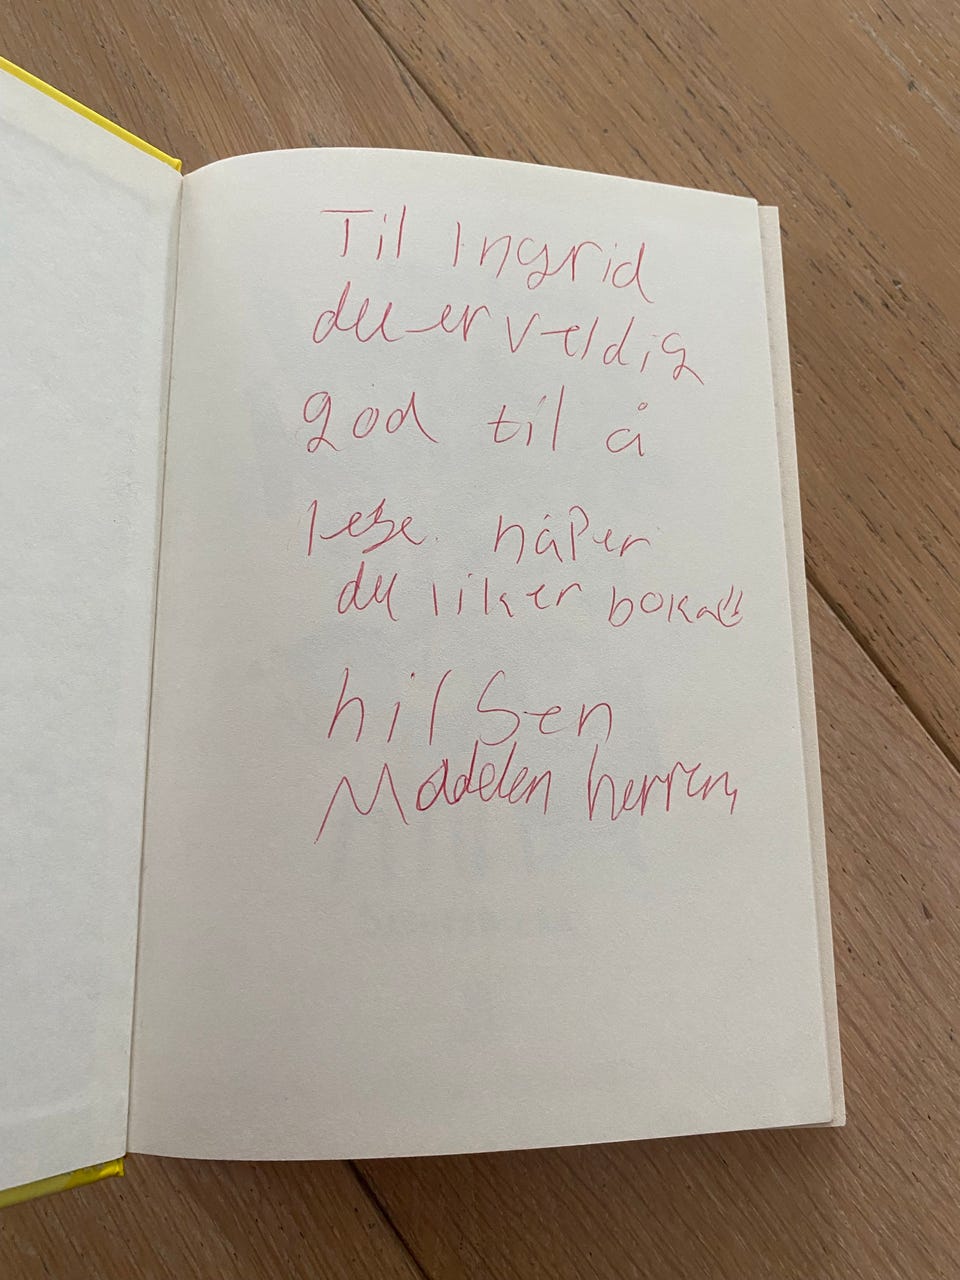 Til Ingrid
du er veldig
god til å
lese. håper
du liker boka
hilsen
Madelen herrem